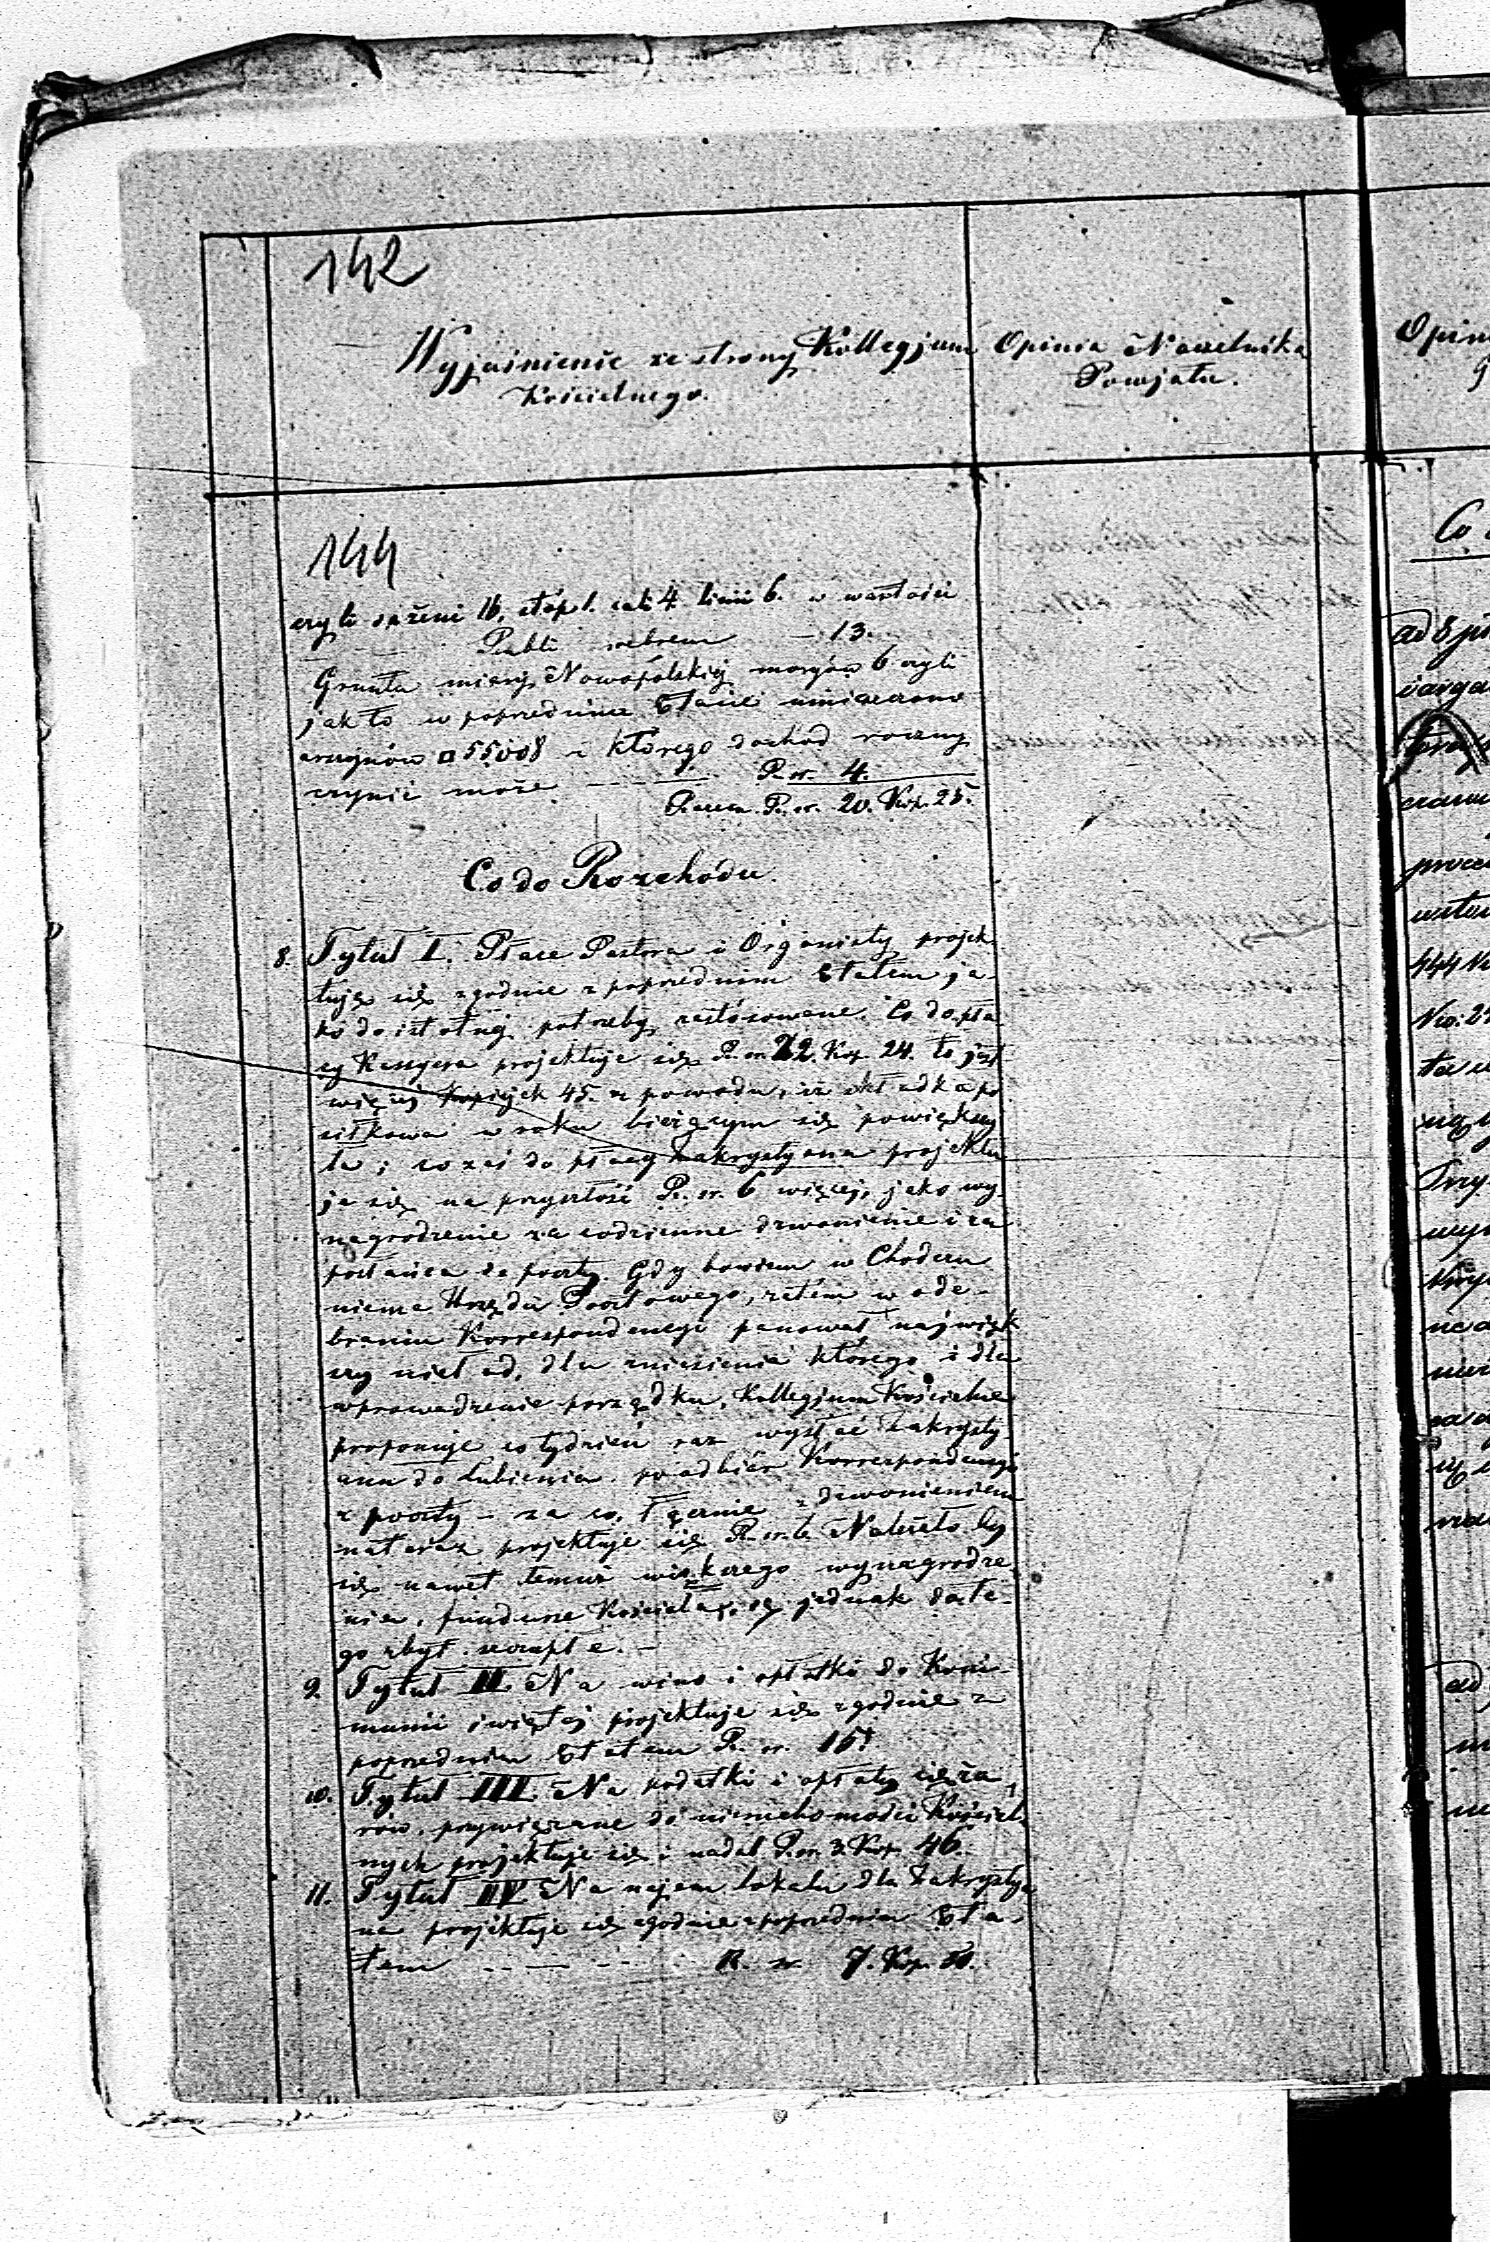 142
Wyjaśnienie ze strony Kollegjum
Kościelnego.
Opinia Naczelnika
Powjatu.
144
czyli sążeni 16, stóp 1. cali 4 linii 6. w wartości
Rubli srebrem — 13.
Grunta miary Nowopolskiej morgów 6 czyli
jak to w poprzednim Etacie umieszczono
arszynów □ 55008 z którego dochód roczny
czynić może — R. sr. 4.
Razem R. sr. 20. Kop. 25.
Co do Rozchodu.
8. Tytuł I. Płace Pastora i Organisty projek-
tuję się zgodnie z poprzednim Etatem ja-
ko do istotnej potrzeby zastósowane. Co do pła-
cy Kassyera projektuje się R. sr. 22. Kop. 24. to jest
więcej Kopiejek 45. z powodu, iż składka po-
siłkowa w roku bieżącym się powiększy-
ła; co zaś do płacy Zakrystyana projektu-
je się na przyszłość R. sr. 6 więcej, jako wy-
nagrodzenie za codzienne dzwonienie i za
posłańca do poczty. Gdy bowiem w Chodczu
niema Urzędu Pocztowego, zatém w ode-
braniu Korrespondencyi panował najwięk-
szy nieład, dla zniesienia którego i dla
wprowadzenie porządku, Kollegjum Kościelne
proponuje co tydzień raz wysłać Zakrysty-
ana do Lubienia po odbiór Korrespondencyi
z poczty — za co, łącznie z dzwonieniem
nateraz projektuje się R. sr. 6. Należało by
się nawet temuż większego wynagrodze-
nia, fundusze Kościelne, są jednak do te-
go zbyt szczupłe. —
9. Tytuł II. Na wino i opłatki do Kom-
munii świętej projektuje się zgodnie z
poprzednim Etatem R. sr. 15.
10. Tytuł III. Na podatki i opłaty cięża-
rów, przywiązane do nieruchomości Kościel-
nych projektuje się i nadal R. sr. 3. Kop. 46.
11. Tytuł IV Na najem lokalu dla Zakrystya-
na projektuje się zgodnie z poprzednim Eta-
tem — R. sr. 7. Kop. 50.
Opin
Co
ad 8
444